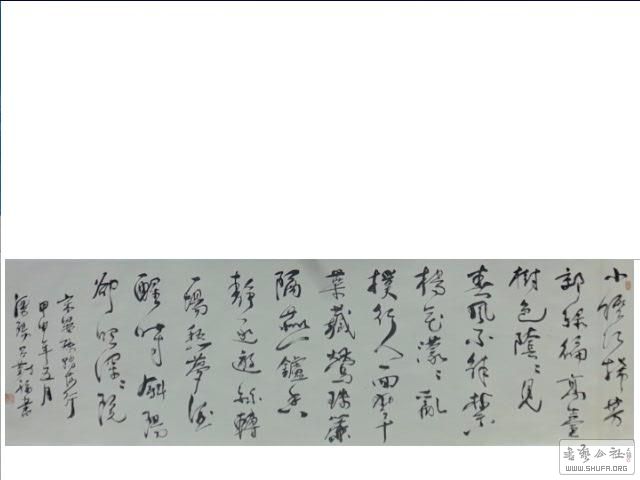 小徑紅稀芳
郊綠徧高臺
樹色陰〻見
春風不解禁
楊花濛〻亂
撲行人面翠
葉藏鶯珠簾
隔燕鑪香
靜逐遊絲轉
一場愁夢酒
醒時斜陽
卻照深〻院
宋晏殊踏莎行
甲申年五月
書
書藝公社
WWW.SHUFA.ORG